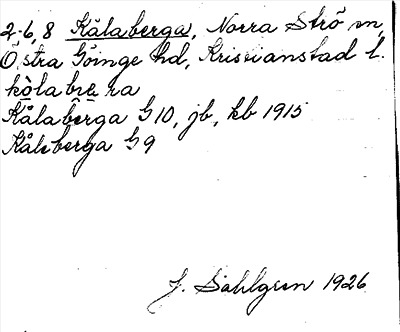 2-6, 8 Kålaberga, Norra Strö sn,
Östra Göinge hd, Kristianstad l.
kòlabræ̀ra
Kålaberga G 10, jb, kb 1915
Kålsberga G 9
J. Sahlgren 1926